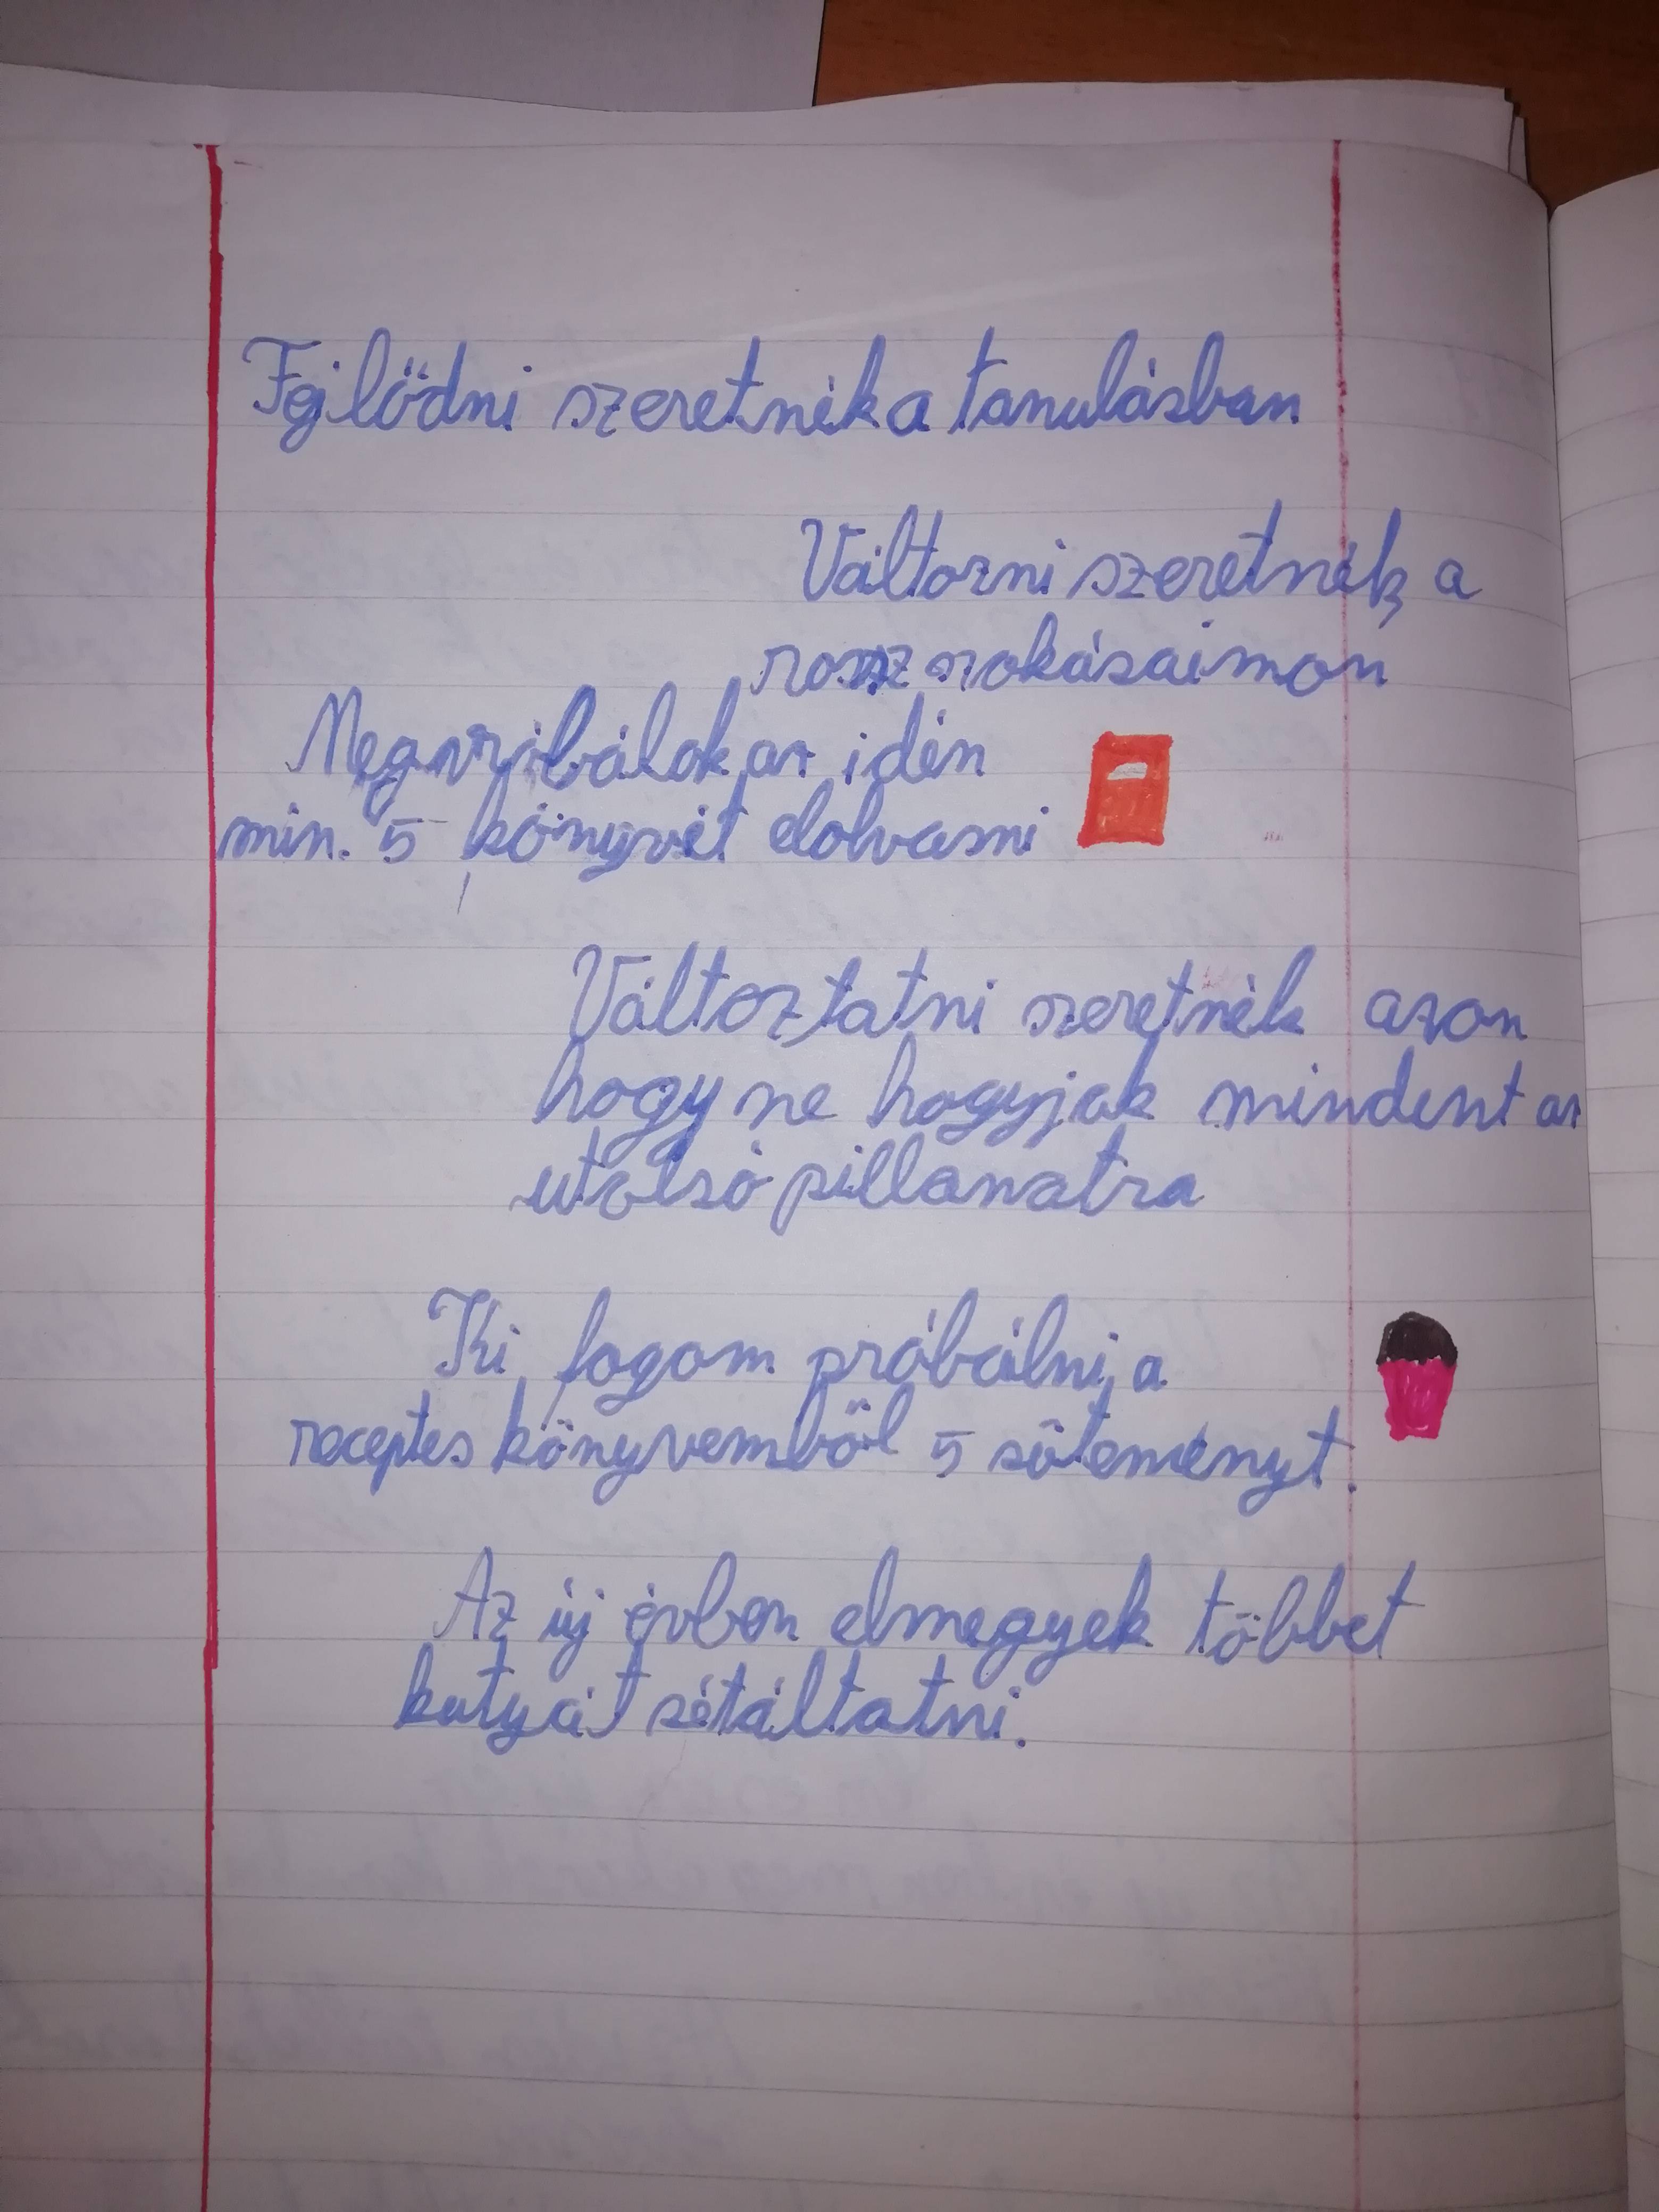 Fejlödni szeretnék a tanulásban
Változni szeretnék a
rossz szokásaimon
Megpróbálok az idén
min. 5 könyvet elolvasni
Változtatni szeretnék azon
hogy ne hagyjak mindent az
utolsó pillanatra
Ki fogom próbálni a
receptes könyvemböl 5 süteményt.
Az új évben elmegyek többet
kutyát sétáltatni.